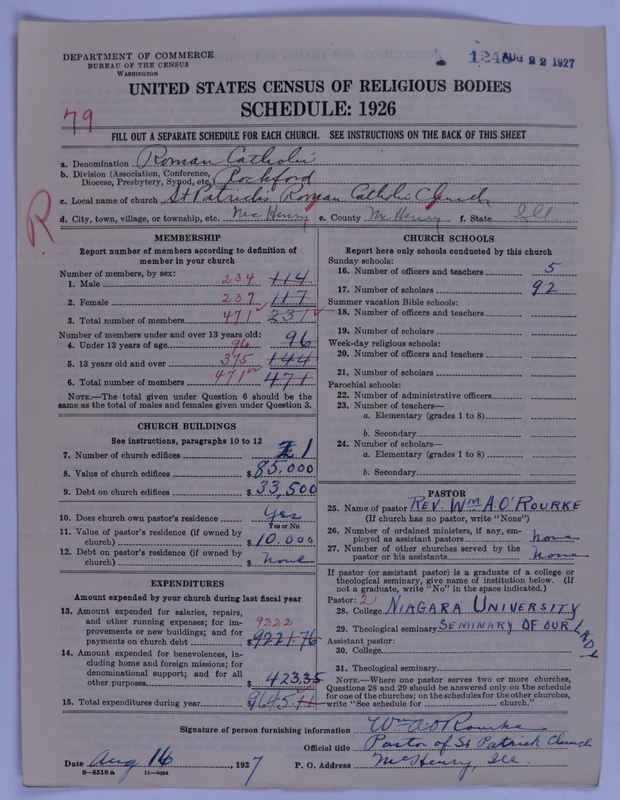 DEPARTMENT OF COMMERCE
BUREAU OF THE CENSUS
WASHINGTON
AUG 22 1927
UNITED STATES CENSUS OF RELIGIOUS BODIES
SCHEDULE: 1926
79
FILL OUT A SEPARATE SCHEDULE FOR EACH CHURCH. SEE INSTRUCTIONS ON THE BACK OF THIS SHEET
a. Denomination Roman Catholic
b. Division (Association, Conference, Diocese, Presbytery, Synod, etc.) Rockford
c. Local name of church St Patrick's Roman Catholic Church
d. City, town, village, or township, etc. McHenry e. County McHenry f. State Ill
R
MEMBERSHIP
Report number of members according to definition of
member in your church
Number of members, by sex:
1. Male 234 114
2. Female 237 117
3. Total number of members 471 231
Number of members under and over 13 years old:
4. Under 13 years of age 96 96
5. 13 years old and over 375 144
6. Total number of members 471 471
NOTE.—The total given under Question 6 should be the
same as the total of males and females given under Question 3.
CHURCH BUILDINGS
See instructions, paragraphs 10 to 12
7. Number of church edifices 1
8. Value of church edifices $85,000
9. Debt on church edifices $33,500
10. Does church own pastor's residence Yes
Yes or No
11. Value of pastor's residence (if owned by
church) $10.000
12. Debt on pastor's residence (if owned by
church) $ None
EXPENDITURES
Amount expended by your church during last fiscal year
13. Amount expended for salaries, repairs,
and other running expenses; for im-
provements or new buildings; and for
payments on church debt 9222 $9221.76
14. Amount expended for benevolences, in-
cluding home and foreign missions; for
denominational support; and for all
other purposes $423.35
15. Total expenditures during year $9645.11
CHURCH SCHOOLS
Report here only schools conducted by this church
Sunday schools:
16. Number of officers and teachers 5
17. Number of scholars 92
Summer vacation Bible schools:
18. Number of officers and teachers
19. Number of scholars
Week-day religious schools:
20. Number of officers and teachers
21. Number of scholars
Parochial schools:
22. Number of administrative officers
23. Number of teachers—
a. Elementary (grades 1 to 8)
b. Secondary
24. Number of scholars—
a. Elementary (grades 1 to 8)
b. Secondary
PASTOR
25. Name of pastor REV. WM A. O'ROURKE
(If church has no pastor, write "None")
26. Number of ordained ministers, if any, em-
ployed as assistant pastors None
27. Number of other churches served by the
pastor or his assistants None
If pastor (or assistant pastor) is a graduate of a college or
theological seminary, give name of institution below. (If
not a graduate, write "No" in the space indicated.)
Pastor: 2
28. College NIAGARA UNIVERSITY
29. Theological seminary SEMINARY OF OUR LADY
Assistant pastor:
30. College
31. Theological seminary
NOTE.—Where one pastor serves two or more churches,
Questions 28 and 29 should be answered only on the schedule
for one of the churches; on the schedules for the other churches,
write "See schedule for church."
Signature of person furnishing information Wm A O'Rourke
Official title Pastor of St Patrick Church
Date Aug 16, 1927 P. O. Address McHenry, Ill.
S-5518a 11-9084